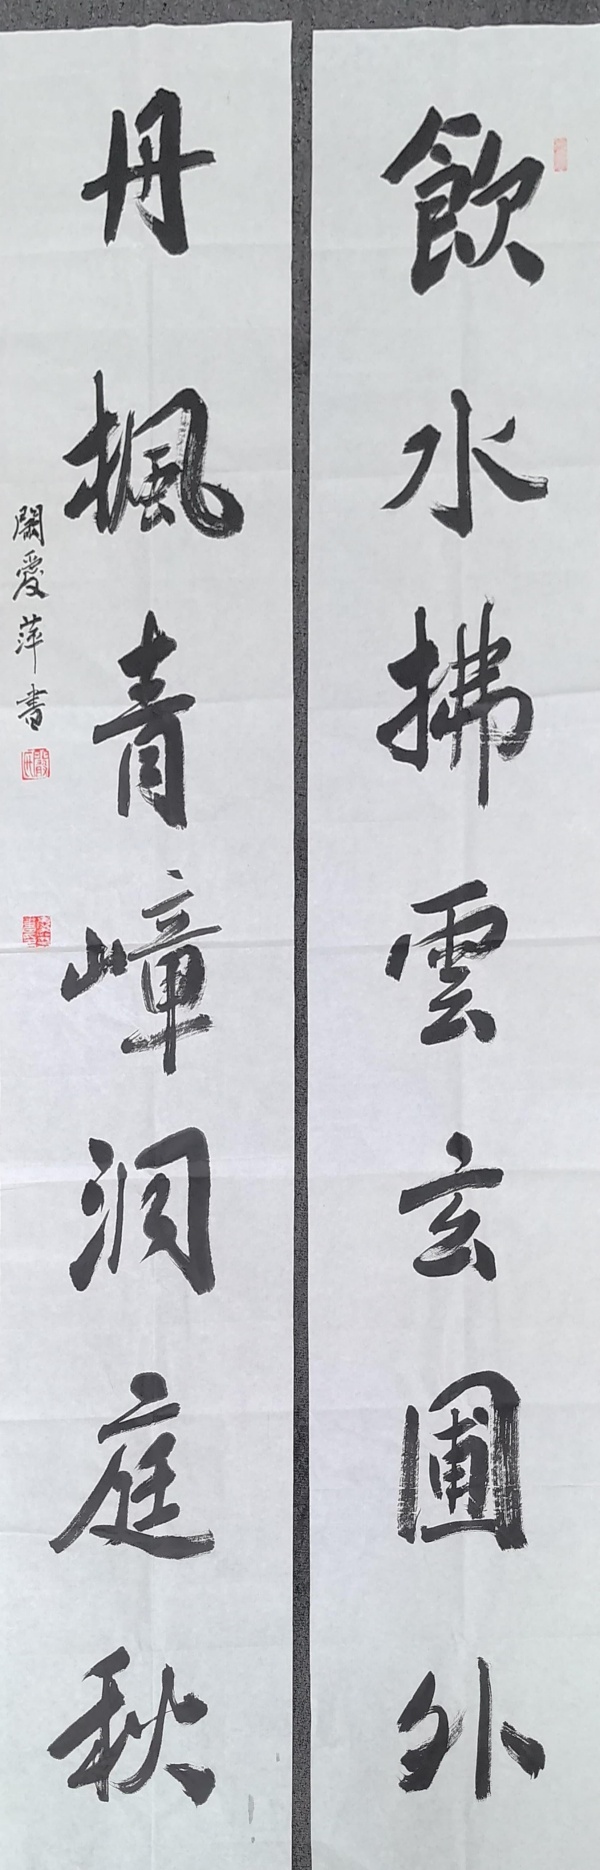 飲水拂雲玄圃外
丹楓青嶂洞庭秋
闞愛萍書